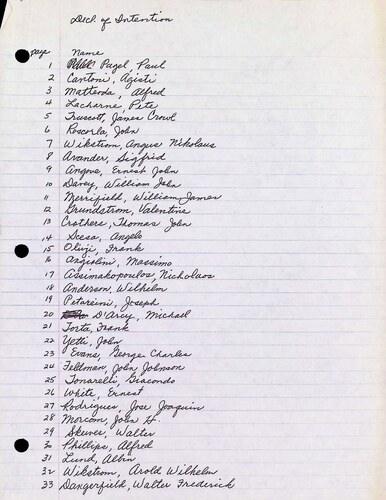 Decl. of Intention
page Name
1 Pagel, Paul
2 Cantoni, Agisti
3 Matteoda, Alfred
4 Lacharne, Pete
5 Truscott, James Crowl
6 Rescorla, John
7 Wikstrom, Angus Nikolaus
8 Avander, Sigfrid
9 Angove, Ernest John
10 Davey, William John
11 Merrifield, William James
12 Brundstrom, Valentine
13 Crothers, Thomas John
14 Scesa, Angelo
15 Frank
16 Angiolini, Massimo
17 Assimakopoulos, Nicholaos
18 Anderson, Wilhelm
19 Joseph
20 D'Arcy, Michael
21 Torta, Frank
22 Yetti, John
23 Evans, George Charles
24 Feldman, John Johnson
25 Tonarelli, Giacondo
26 White, Ernest
27 Rodrigues, Jose Joaquin
28 Morcom, John H.
29 Skewes, Walter
30 Phillips, Alfred
31 Lund, Albin
32 Wikstrom, Arold Wilhelm
33 Dangerfield, Walter Frederick